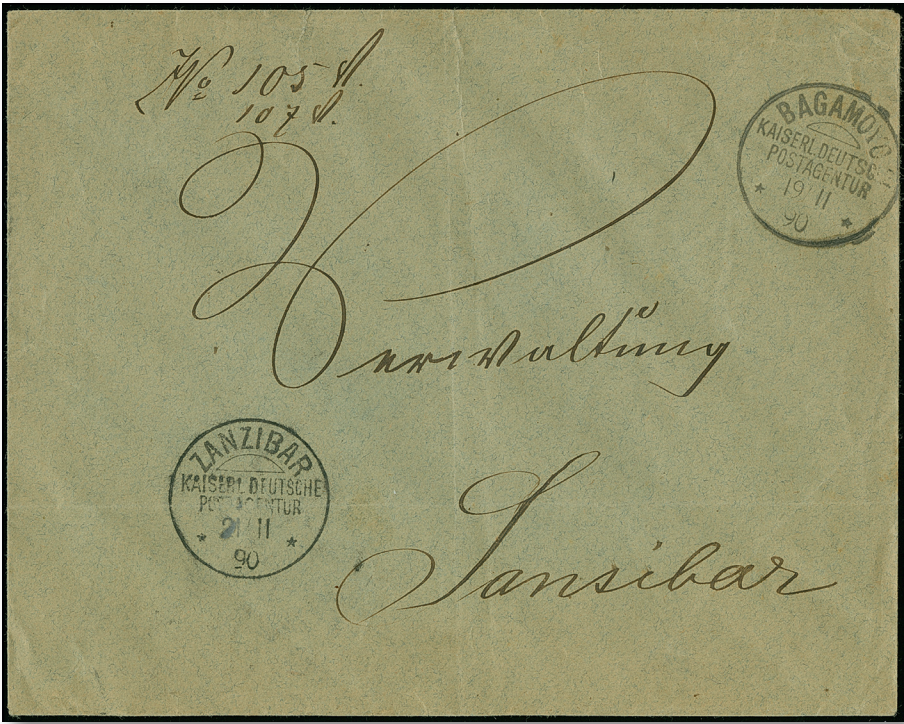 No 105 V.
107 V.
BAGAMOYO
KAISERL. DEUTSCHE
POSTAGENTUR
19 11
90
Verwaltung
ZANZIBAR
KAISERL. DEUTSCHE
POSTAGENTUR
21 11
90
Sansibar